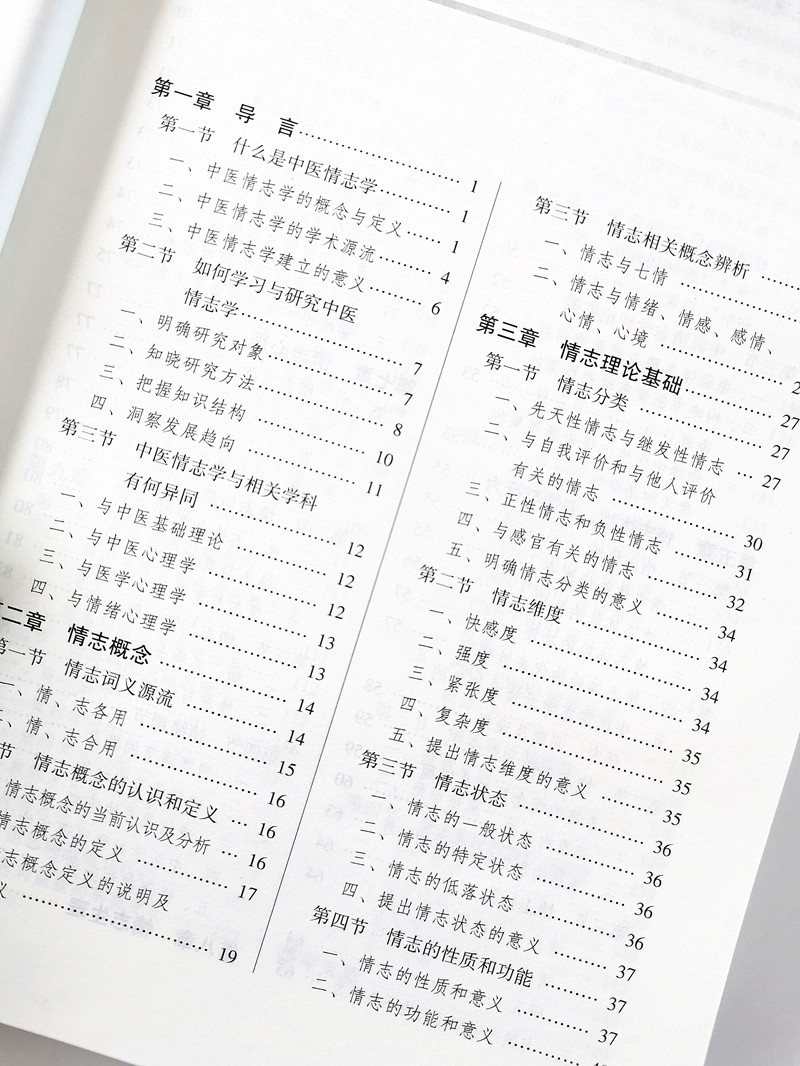 第一章 导 言……………… 1
第一节 什么是中医情志学………… 1
一、中医情志学的概念与定义…… 1
二、中医情志学的学术源流……… 4
三、中医情志学建立的意义……… 6
第二节 如何学习与研究中医
情志学……………… 7
一、明确研究对象……………… 7
二、知晓研究方法……………… 8
三、把握知识结构……………… 10
四、洞察发展趋向……………… 11
第三节 中医情志学与相关学科
有何异同……………… 12
一、与中医基础理论…………… 12
二、与中医心理学……………… 12
三、与医学心理学……………… 13
四、与情绪心理学……………… 13
二章 情志概念……………… 14
第一节 情志词义源流…………… 14
一、情、志各用………………… 15
二、情、志合用………………… 16
节 情志概念的认识和定义…… 16
情志概念的当前认识及分析… 16
情志概念的定义……………… 17
志概念定义的说明及
义……………… 19
第三节 情志相关概念辨析………
一、情志与七情………………
二、情志与情绪、情感、感情、
心情、心境………………
第三章 情志理论基础…………… 27
第一节 情志分类………………… 27
一、先天性情志与继发性情志… 27
二、与自我评价和与他人评价
有关的情志……………… 30
三、正性情志和负性情志……… 31
四、与感官有关的情志………… 32
五、明确情志分类的意义……… 34
第二节 情志维度………………… 34
一、快感度……………………… 34
二、强度………………………… 34
三、紧张度……………………… 35
四、复杂度……………………… 35
五、提出情志维度的意义……… 35
第三节 情志状态………………… 36
一、情志的一般状态…………… 36
二、情志的特定状态…………… 36
三、情志的低落状态…………… 36
四、提出情志状态的意义……… 37
第四节 情志的性质和功能……… 37
一、情志的性质和意义………… 37
二、情志的功能和意义…………